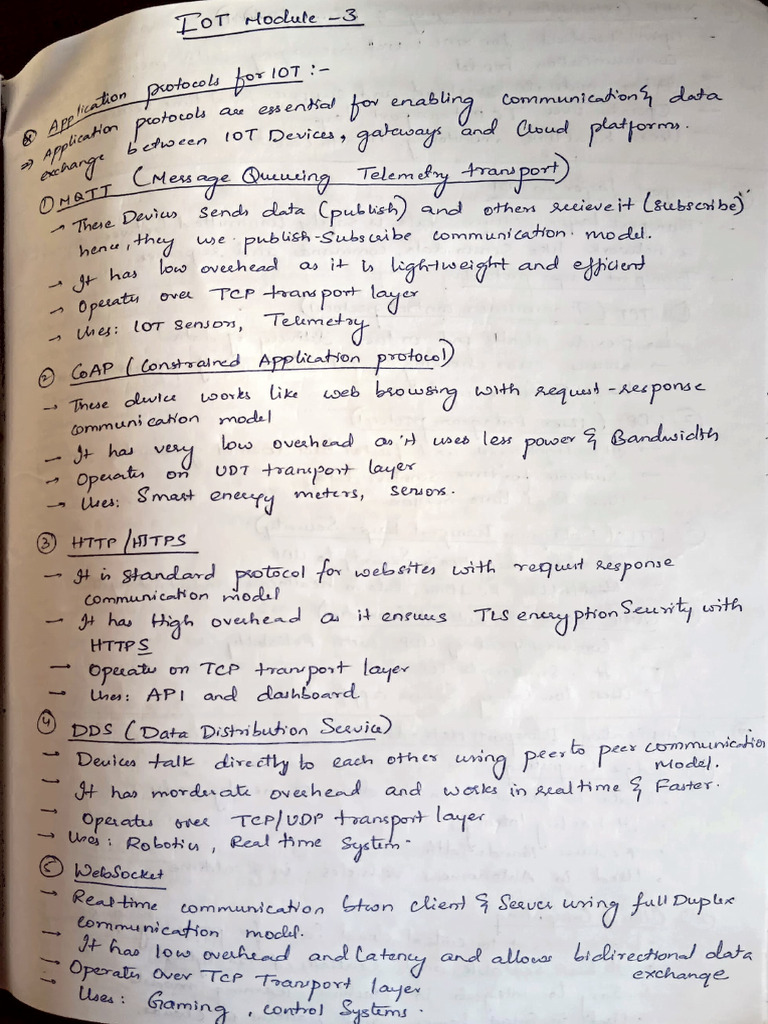 IOT Module -3
Application protocols for IOT :-
⇒ Application protocols are essential for enabling communication & data
exchange between IOT Devices, gateways and Cloud platforms.
① MQTT (Message Queueing Telemetry transport)
→ These Devices sends data (publish) and others recieve it (subscribe)
hence, they use publish-Subscribe communication model.
→ It has low overhead as it is lightweight and efficient
→ Operates over TCP transport layer
→ Uses: IOT sensors, Telemetry
② CoAP (Constrained Application protocol)
→ These device works like web browsing with request-response
communication model
→ It has very low overhead as it uses less power & Bandwidth
→ Operates on UDT transport layer
→ Uses: Smart energy meters, sensors.
③ HTTP/HTTPS
→ It is standard protocol for websites with request response
communication model
→ It has High overhead as it ensures TLS encryption Security with
HTTPS
→ Operates on TCP transport layer
→ Uses: API and dashboard
④ DDS (Data Distribution Service)
→ Devices talk directly to each other using peer to peer communication
Model.
→ It has morderate overhead and works in real time & Faster.
→ Operates over TCP/UDP transport layer
→ Uses: Robotics, Real time System.
⑤ WebSocket
→ Real-time communication btwn client & Server using full Duplex
communication model.
→ It has low overhead and Latency and allows bidirectional data
exchange
→ Operates Over TCP Transport layer
→ Uses: Gaming, control Systems.